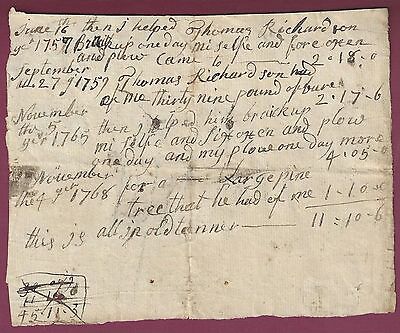 June 16 then I helped Thomas Richardson
yr 1757 Brack up one day mi selfe and fore oxen
and plow came to — 2=18=0
September
the 27 1759 Thomas Richardson had
of me thirty nine pound of 2=17=6
November
the 5 then I helped him braick up
yer 1765 mi selfe and six oxen and plow
one day and my plowe one day more
4=05=0
November
the 4 yer 1768 for a Large pine
tree that he had of me 1=10=0
this is all in old tenner — 11=10=6
45 11=3